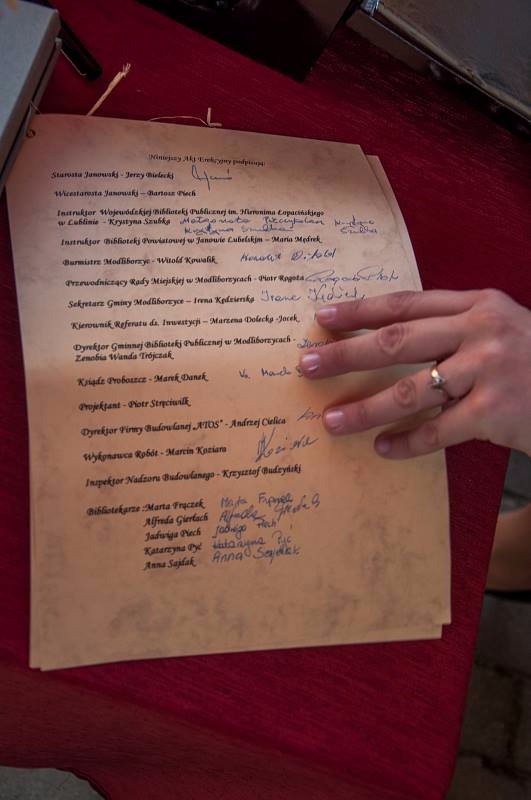 Niniejszy Akt Erekcyjny podpisują:
Starosta Janowski - Jerzy Bielecki
Wicestarosta Janowski – Bartosz Piech
Instruktor Wojewódzkiej Biblioteki Publicznej im. Hieronima Łopacińskiego
w Lublinie - Krystyna Szubka Małgorzata Krystyna
Krystyna Szubka Szubka
Instruktor Biblioteki Powiatowej w Janowie Lubelskim – Maria Mędrek
Burmistrz Modliborzyc - Witold Kowalik Kowalik Witold
Przewodniczący Rady Miejskiej w Modliborzycach - Piotr Rogoża
Sekretarz Gminy Modliborzyce – Irena Kędzierska Irena
Kierownik Referatu ds. Inwestycji – Marzena Dolecka -Jocek
Dyrektor Gminnej Biblioteki Publicznej w Modliborzycach -
Zenobia Wanda Trójczak
Ksiądz Proboszcz - Marek Danek Ks. Marek
Projektant - Piotr Stręciwilk
Dyrektor Firmy Budowlanej „ATOS" - Andrzej Cielica
Wykonawca Robót - Marcin Koziara
Inspektor Nadzoru Budowlanego - Krzysztof Budzyński
Bibliotekarze :Marta Frączek Marta Frączek
Alfreda Gierlach Alfreda Gierlach
Jadwiga Piech Jadwiga Piech
Katarzyna Pyć Katarzyna Pyć
Anna Sajdak Anna Sajdak